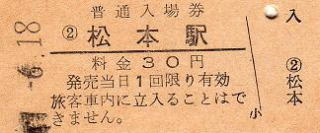 普通入場券
② 松本駅
料金30円
発売当日1回限り有効
旅客車内に立入ることはで
きません。
小
入
② 松本
6.18